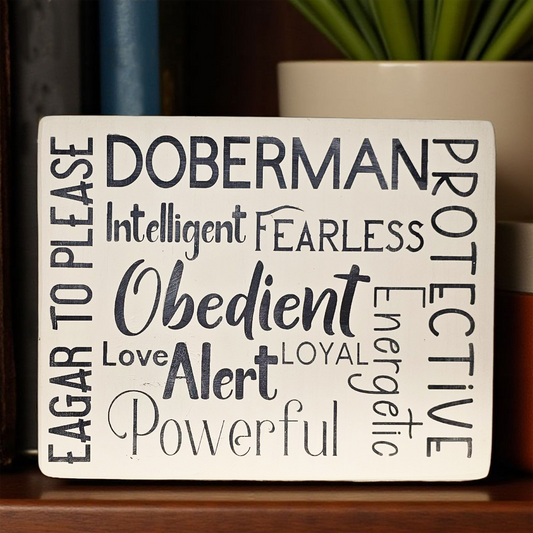 EAGAR TO PLEASE
DOBERMAN
Intelligent FEARLESS
Obedient
Love Alert LOYAL
Powerful
Energetic
PROTECTIVE